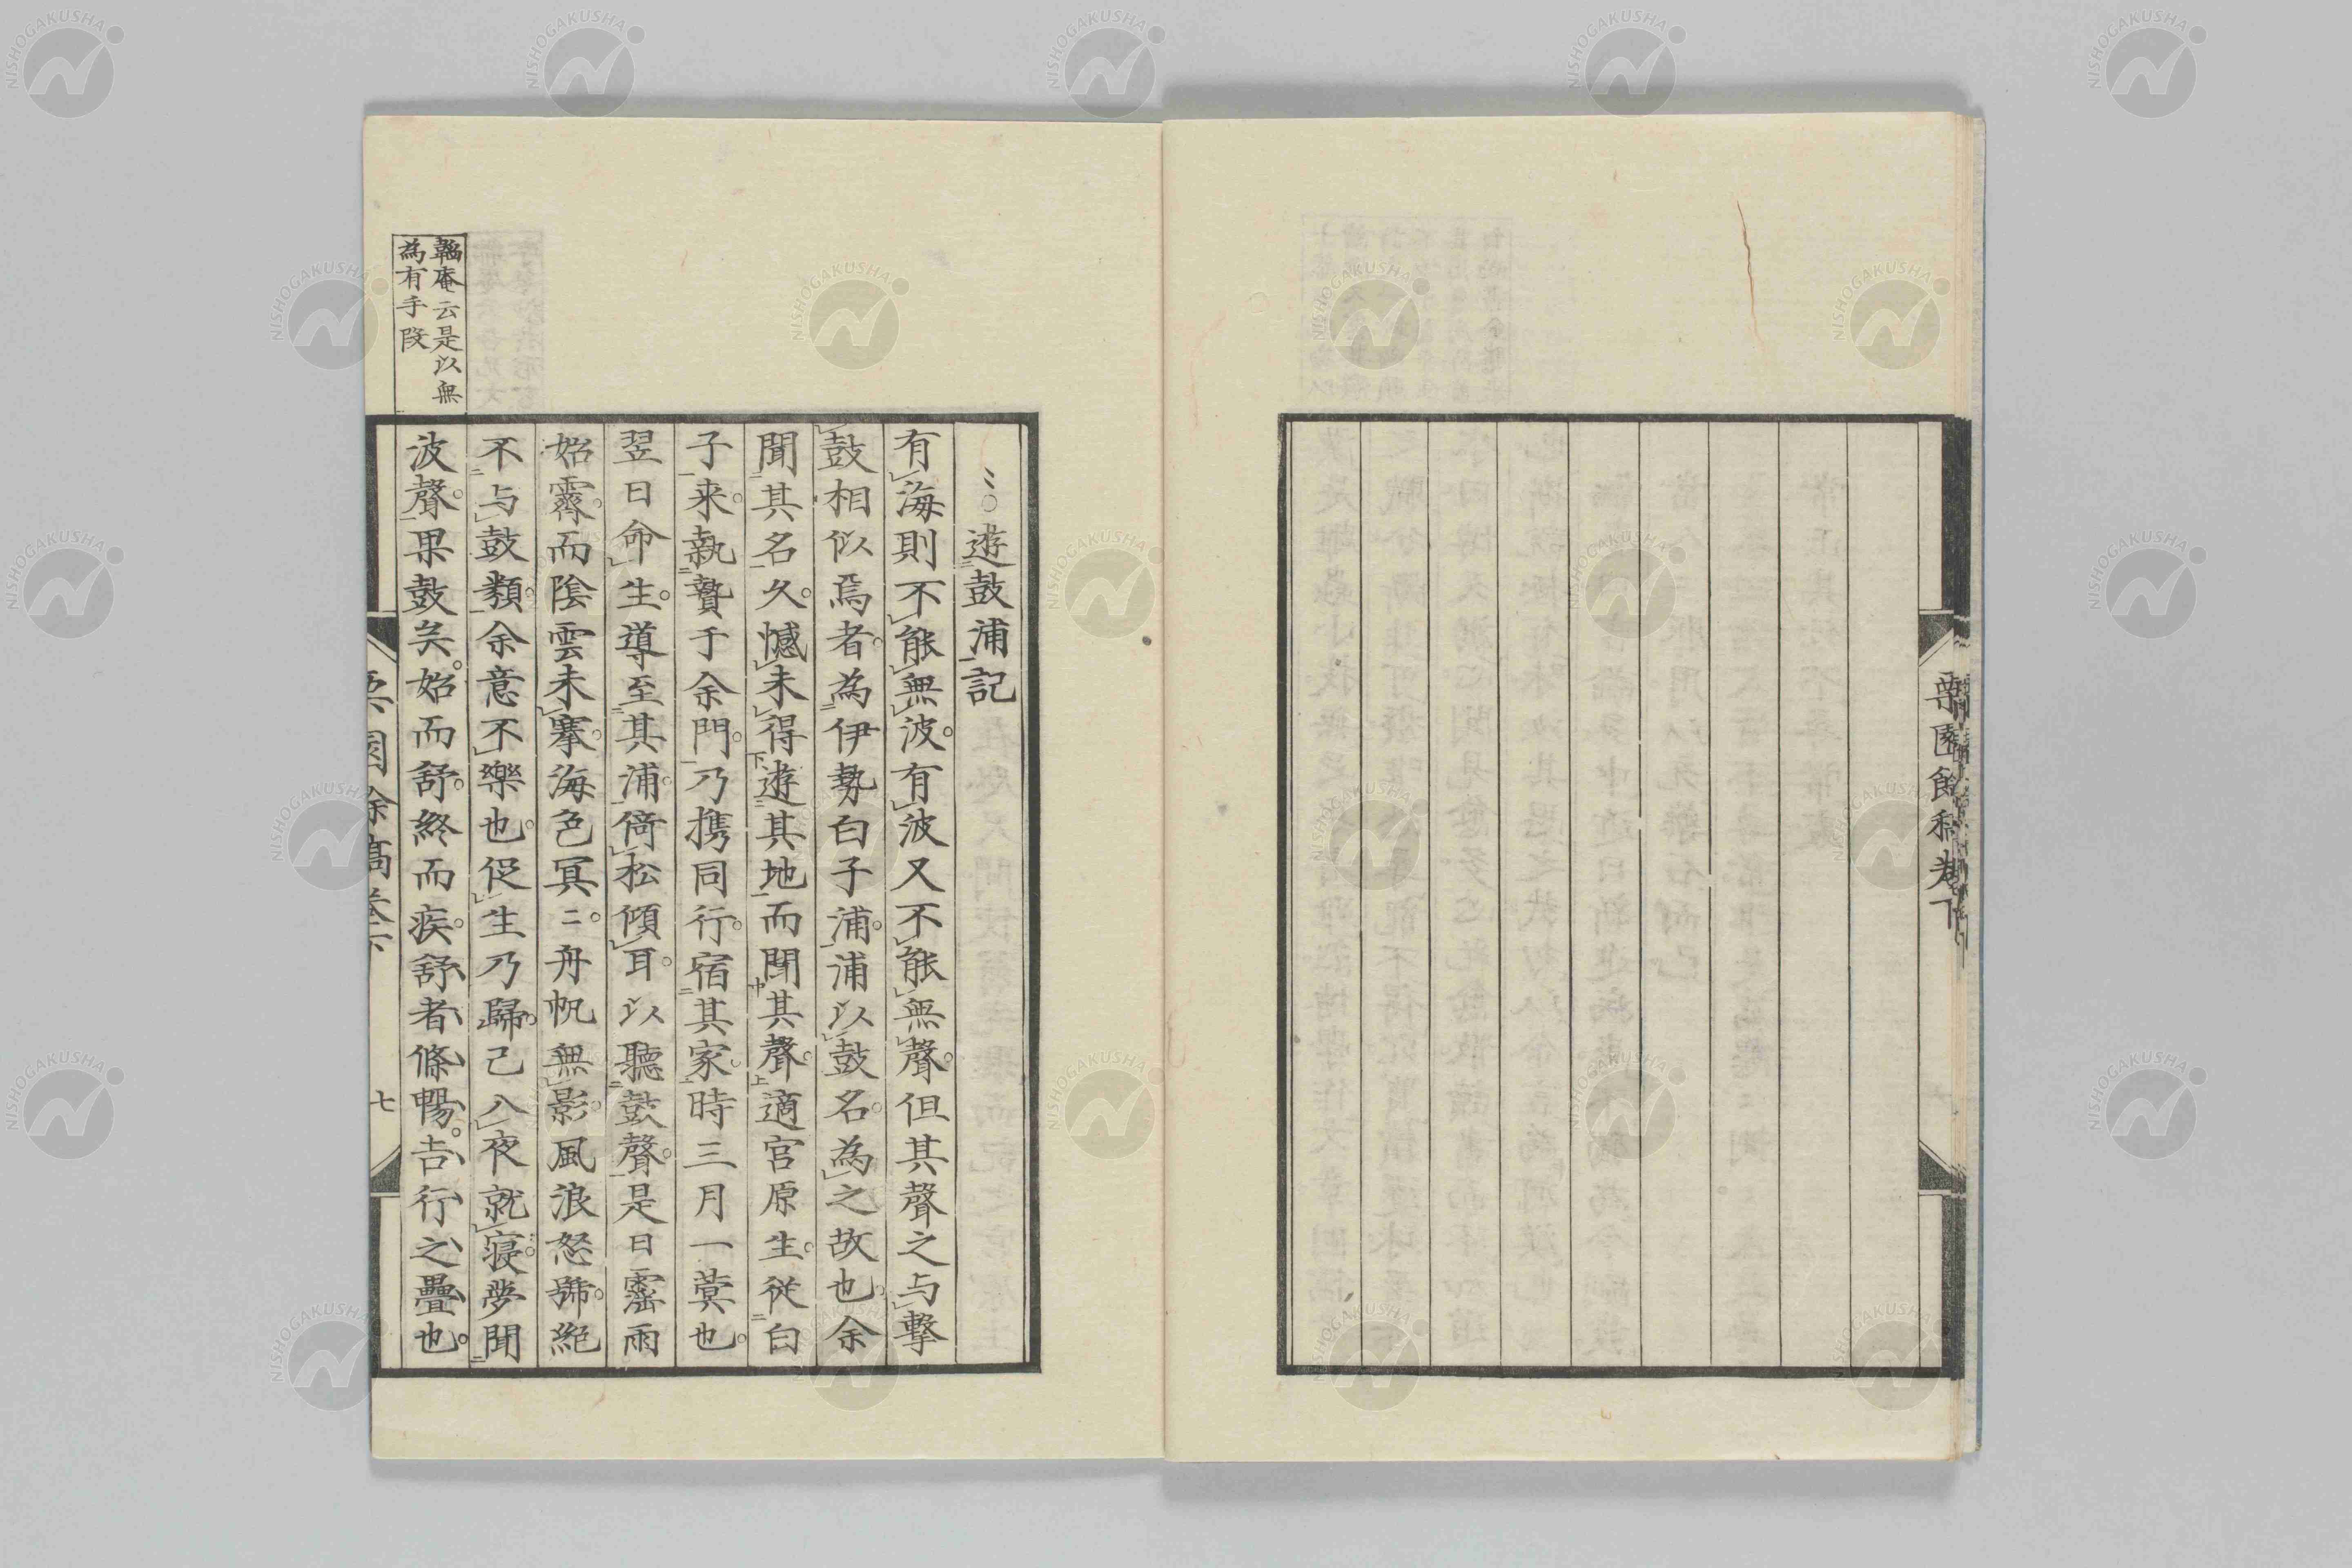 栗園餘稿巻下
遊鼓浦記
有海則不能無波。有波又不能無聲。但其聲之与擊
鼓相似焉者。為伊勢白子浦。浦以鼓名。為之故也。余
聞其名久。憾未得遊其地而聞其聲。適宮原生。従白
子来。執贄于余門。乃携同行。宿其家。時三月一蓂也。
翌日命生。導至其浦。倚松傾耳。以聽鼓聲。是日霽雨
始霽。而陰雲未搴。海色冥〻。舟帆無影。風浪怒號。絶
不与鼓類。余意不樂也。促生乃歸。已入夜就寝。夢聞
波聲。果鼓矣。始而舒。終而疾。舒者條暢。吉行之疊也。
韜庵云是以無
為有手段
栗園餘稿卷下
七
NISHOGAKUSHA